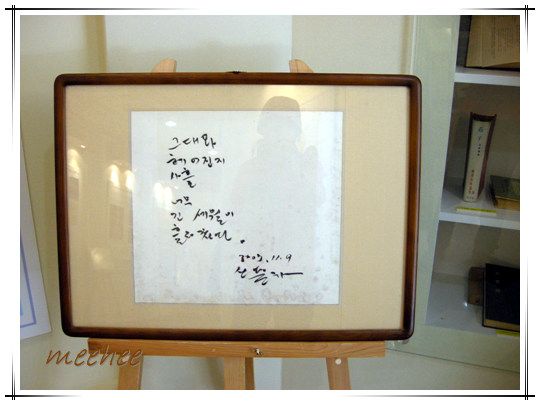 그대와
헤어진지
사흘
너무
긴 세월이
흘러갔다.
2005.11.9
meehee